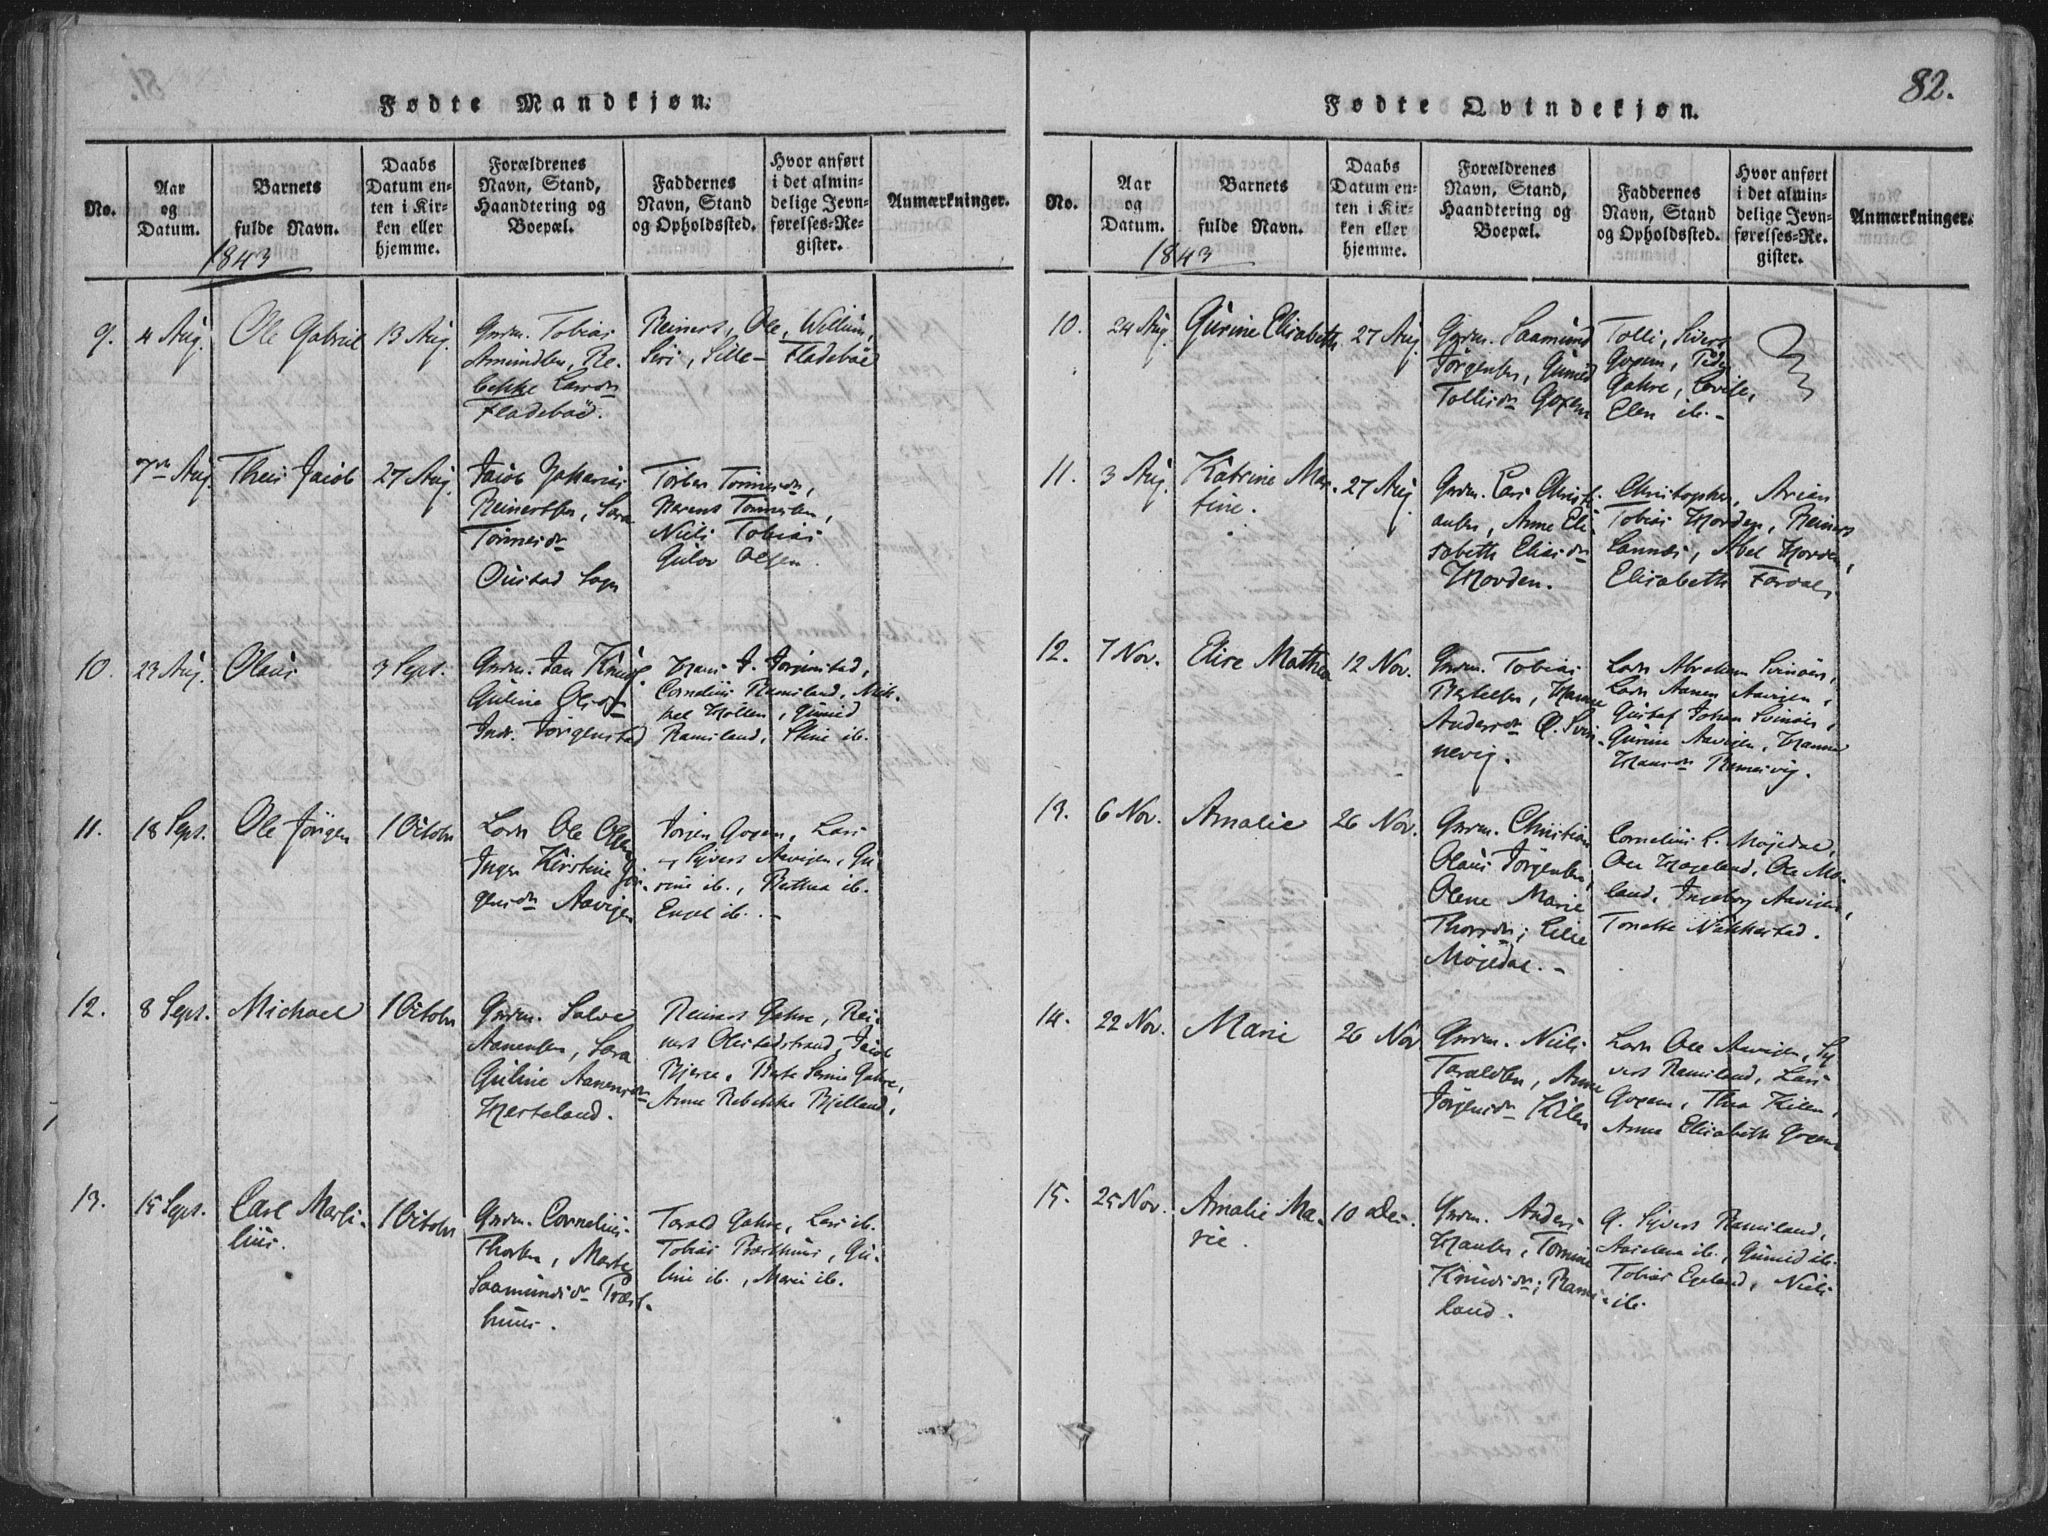 82.
Fødte Mandkjøn.
No.
Aar og Datum.
Barnets fulde Navn.
Daabs Datum enten i Kirken eller hjemme.
Forældrenes Navn, Stand, Haandtering og Boepæl.
Faddernes Navn, Stand og Opholdssted.
Hvor anført i det almindelige Jevnførelses-Register.
Anmærkninger.
1843
9. 4 Aug. Ole Gabriel 13 Aug.
Grdm. Tobias
Amundsen, Re-
bekke Larsdr
Fladeböe.
Reinert, Ole, Willum,
Siri, Sille - Fladeböe
7de Aug. Theis Jacob 27 Aug.
Jacob Zakarias
Reinertsen, Sara
Tönnesdr
Ouestad Sogn
Torber Tönnesdr,
Berent Tönnesen,
Niels Tobias
Gulov Olsen.
10. 23 Aug. Olaus 3 Sept.
Grdm. Jan Knuds.
Guline Olsdr
Indr. Jörgenstad
Hans J. Jörgenstad,
Cornelius Ramsland, Mik-
kel Hollen, Gunild
Ramsland, Stine ib.
11. 18 Sept. Ole Jörgen 1 Octobr
Lods Ole Olsen
Inger Kirstine Jör-
gensdr Aavigen
Jörgen Goxem, Lars
- Syvert Aavigen, Gu-
rine ib., Berthea ib.
Engel ib. -
12. 8 Sept. Michael 1 Octobr
Grdm. Salve
Aanensen, Sara
Guline Aanensdr
Hasteland.
Reinert Gahre, Rei-
nert Olestadstrand, Jacob
Bjerce, Berte Serine Gahre,
Anne Rebekke Bjelland,
13. 15 Sept. Carl Marti- 1 Octobr
lius.
Grdm. Cornelius
Thorsen, Marte
Saamundsdr Præst-
huus.
Tarald Gahre, Lars ib.
Tobias Præsthuus, Gu-
line ib., Maria ib.
Fødte Qvindekjøn.
No.
Aar og Datum.
Barnets fulde Navn.
Daabs Datum enten i Kirken eller hjemme.
Forældrenes Navn, Stand, Haandtering og Boepæl.
Faddernes Navn, Stand og Opholdssted.
Hvor anført i det almindelige Jevnførelses-Register.
Anmærkninger.
1843
10. 24 Aug. Gurine Elisabeth 27 Aug.
Grdm. Saamund
Jörgensen, Gunild
Tollisdr Goxem
Tolli, Sivert
Goxem, Peder
Gahre, Lovise,
Elen ib. -
11. 3 Aug. Katrine Mar- 27 Aug.
tine.
Grdm. Lars Christi-
ansen, Anne Eli-
sabeth Eliasdr
Hovden.
Christopher, Arian
Tobias Hovden, Reinert
Lannæs, Abel Hovden,
Elisabeth Fardal.
12. 7 Nov. Elise Mathea 12 Nov.
Grdm. Tobias
Bertelsen, Hanne
Andersdr Ø. Svin-
nevig.
Lods Abraham Svinöer,
Lods Aanen Aavigen,
Gustaf Johan Svinöer,
Gurine Aavigen, Hanne
Hansdr Remesvig.
13. 6 Nov. Amalie 26 Nov.
Grdm. Christian
Olaus Jörgensen,
Olene Marie
Thorsdr, Lille
Möjedal. -
Cornelius L. Möjedal,
Ole Hageland, Ole Mo-
land, Ingeborg Aavigen,
Tonette Nökkestad.
14. 22 Nov. Marie 26 Nov
Grdm. Niels
Taraldsen, Anne
Jörgensdr Kilen
Lods Ole Aavigen, Sy-
vert Ramsland, Lars
Goxem, Thea Kilen,
Anne Elisabeth Goxem
15. 25 Nov. Amalie Ma- 10 Dec.
rie.
Grdm. Anders
Hansen, Tomine
Knudsdr, Rams-
land.
G. Syvert Ramsland,
Aaselena ib., Gunild ib.
Tobias Egeland, Niels
ib.